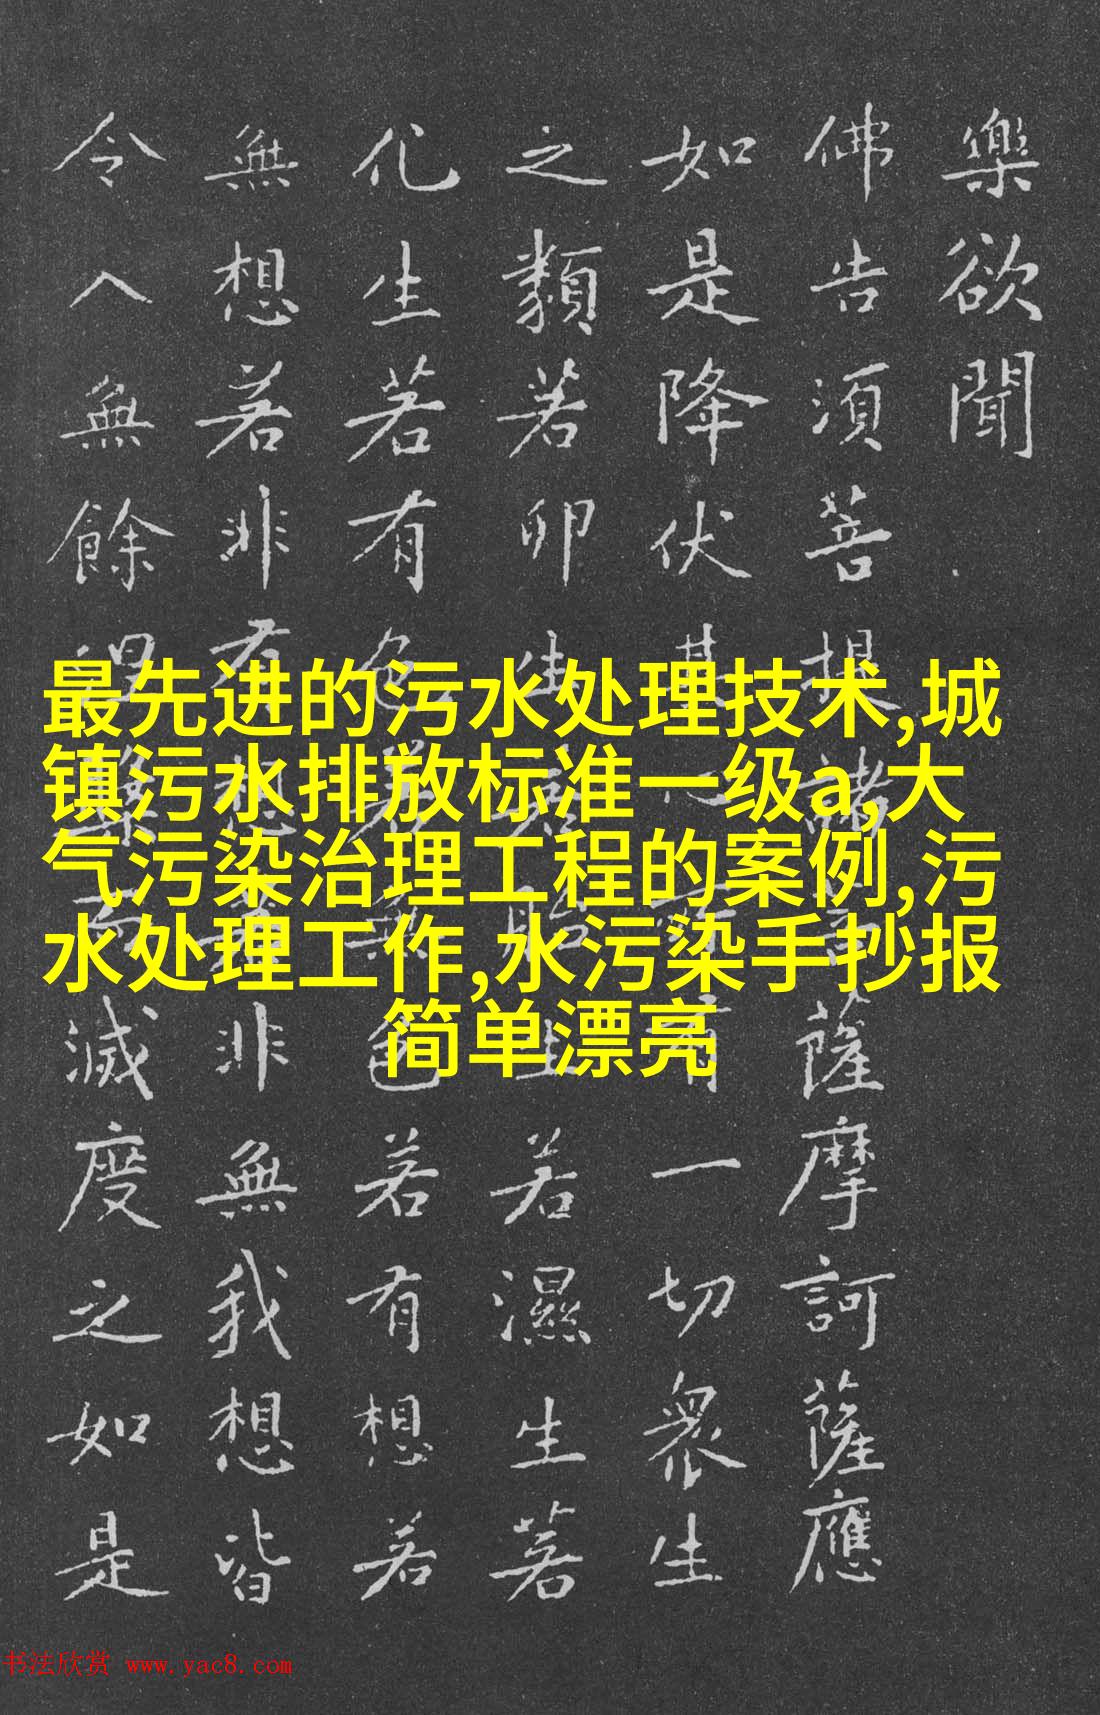 樂欲聞
佛告須菩提諸菩薩摩訶薩應
如是降伏其心所有一切衆生
之類若卵生若胎生若濕生若
化生若有色若無色若有想若
無想若非有想若非無我想皆
令入無餘涅槃而滅度之如是
最先进的污水处理技术,城
镇污水排放标准一级a,大
气污染治理工程的案例,污
水处理工作,水污染手抄报
简单漂亮
书法欣赏 www.yac8.com